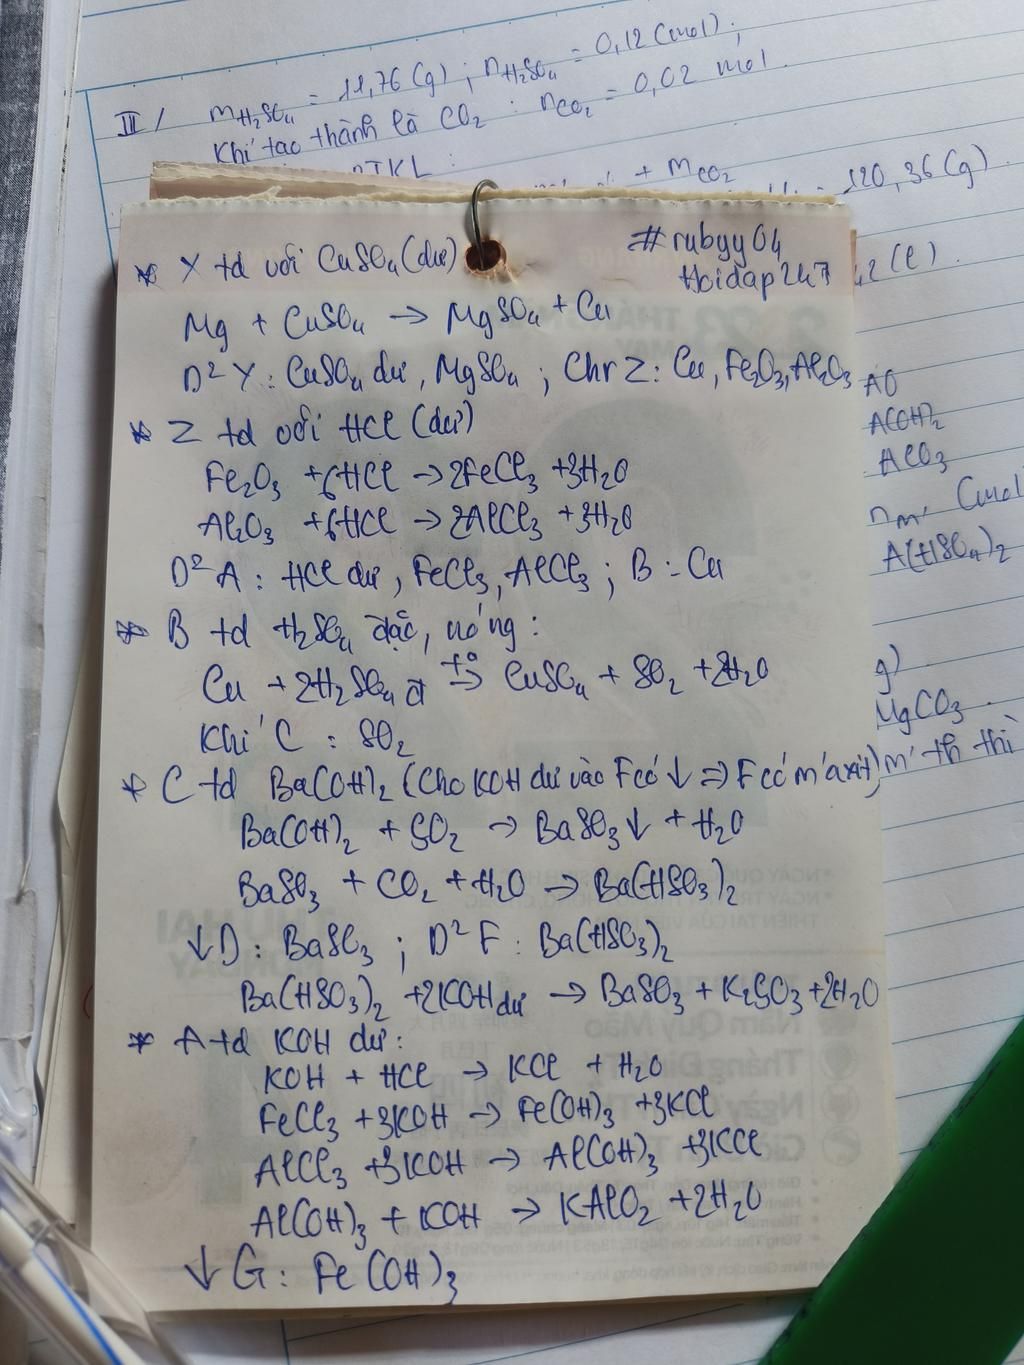 III/ mH2SO4 = 11,76 (g) ; nH2SO4 = 0,12 (mol);
Khí tạo thành là CO2 : nCO2 = 0,02 mol.
ĐTKL :
+ mCO2
= 120,36 (g)
#rubyy04
Hoidap247
* X td với CuSO4 (dư)
42 (l).
Mg + CuSO4 → MgSO4 + Cu
D² Y : CuSO4 dư, MgSO4 ; Chr Z : Cu, Fe2O3, Al2O3
AO
A(OH)2
ACO3
* Z td với HCl (dư)
Fe2O3 + 6HCl → 2FeCl3 + 3H2O
Al2O3 + 6HCl → 2AlCl3 + 3H2O
(mol
A(HSO4)2
D² A : HCl dư, FeCl3, AlCl3 ; B : Cu
* B td H2SO4 đặc, nóng :
Cu + 2H2SO4 đ t° → CuSO4 + SO2 + 2H2O
g)
MgCO3
Khí C : SO2
* C td Ba(OH)2 (Cho KOH dư vào F có ↓ => F có m' axit)
m' th thì
Ba(OH)2 + SO2 → BaSO3 ↓ + H2O
BaSO3 + CO2 + H2O → Ba(HSO3)2
↓ D : BaSO3 ; D² F : Ba(HSO3)2
Ba(HSO3)2 + 2KOH dư → BaSO3 + K2SO3 + 2H2O
* A td KOH dư :
KOH + HCl → KCl + H2O
FeCl3 + 3KOH → Fe(OH)3 + 3KCl
AlCl3 + 3KOH → Al(OH)3 + 3KCl
Al(OH)3 + KOH → KAlO2 + 2H2O
↓ G : Fe(OH)3